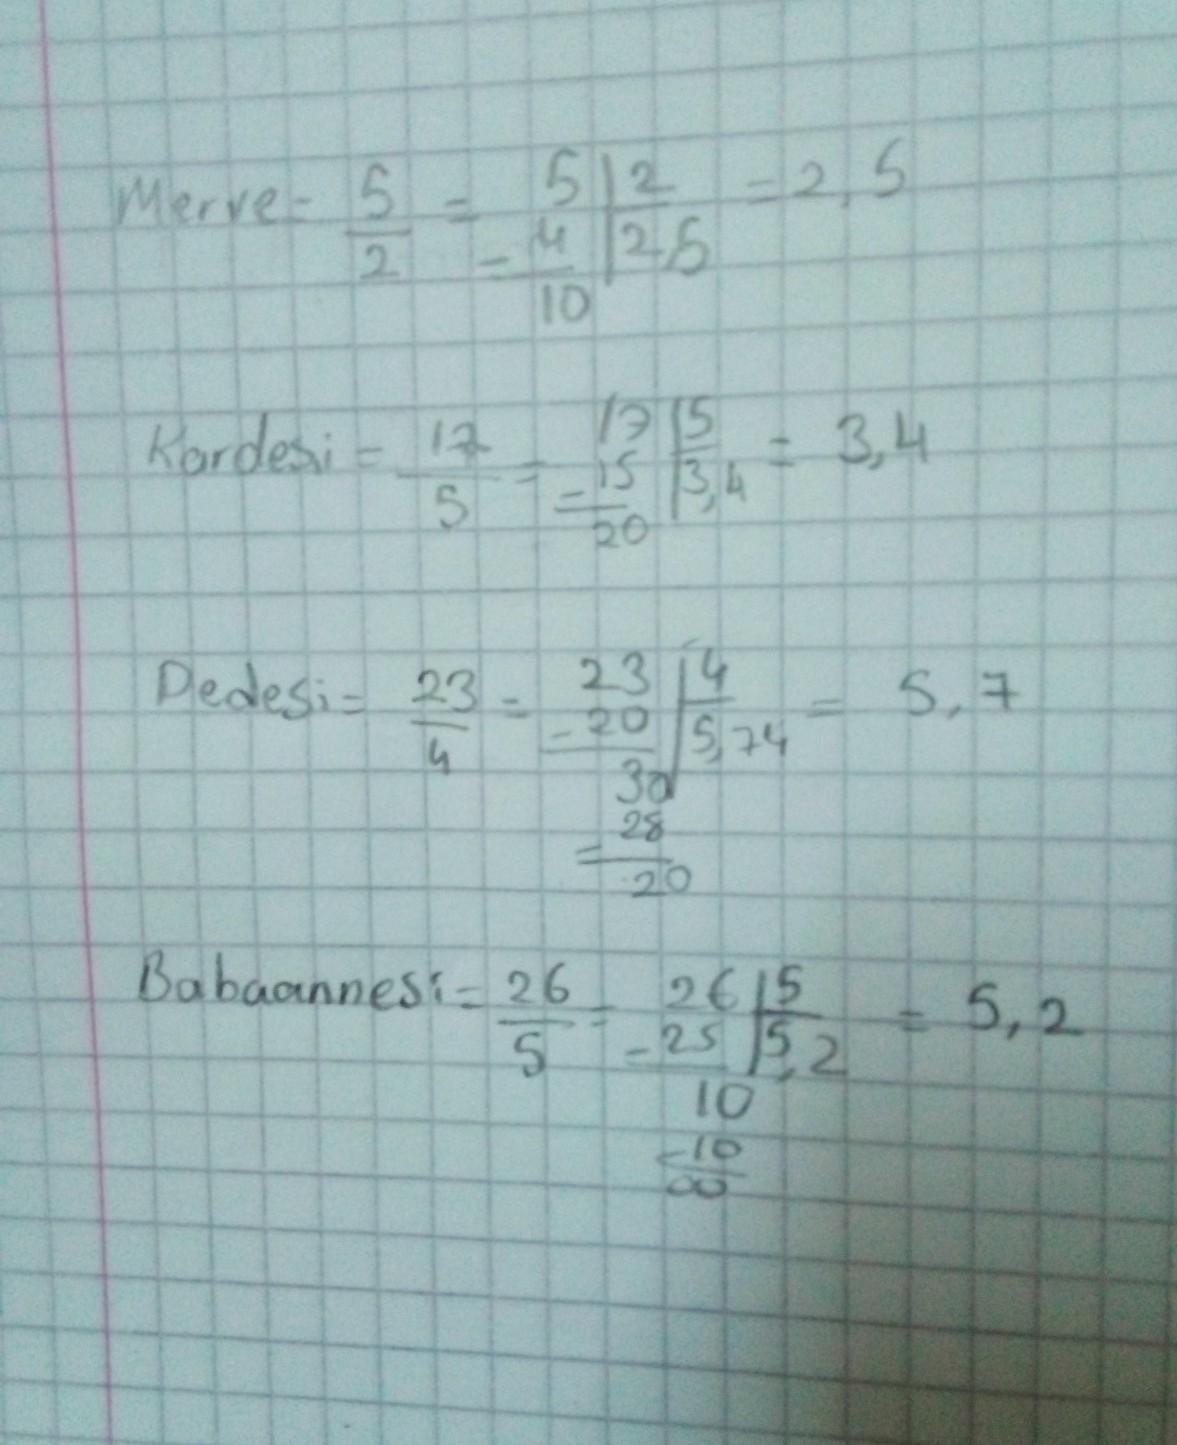 Merve = 5/2 = 5 | 2 = 2,5
- 4 | 2,5
10
Kardesi = 17/5 = 17 | 5 = 3,4
- 15 | 3,4
20
Dedesi = 23/4 = 23 | 4 = 5,7
- 20 | 5,74
30
- 28
20
Babaannesi = 26/5 = 26 | 5 = 5,2
- 25 | 5,2
10
- 10
00